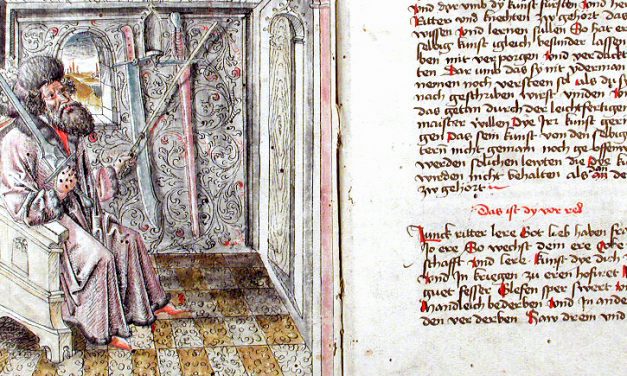 Und dyr vmb dy kunst fürsten Vnd her
Ritter vnd knechten zw gehört das
wissen Vnd lernen süllen So hat er
selbig kunst igleich besunder lassen
ben mit verporgen Vnd verdackt
ten Dar umb das sy nit yderman
nemen noch versteen sol als du sy
nach geschriben vinst vnden
das getan durch der leichtfertigen
maister willen Dye Irr kunst geri
gen Das sein kunst von den selbig
tern nicht gemain noch geoffenw
werden solichen lewten die Dye k
wirden nicht behalten als dan de
zw gehört
Das ist dy vor red
Junck ritter lere Got lieb haben fra
Jo ere So wechst dein ere Vbe
schafft Vnd lere kunst dye dich z
Vnd In kriegen zu eren hofiret
guet fesser Glefen sper swert vn
Mandleich bederben Vnd in ande
den verderben Haw drein vnd